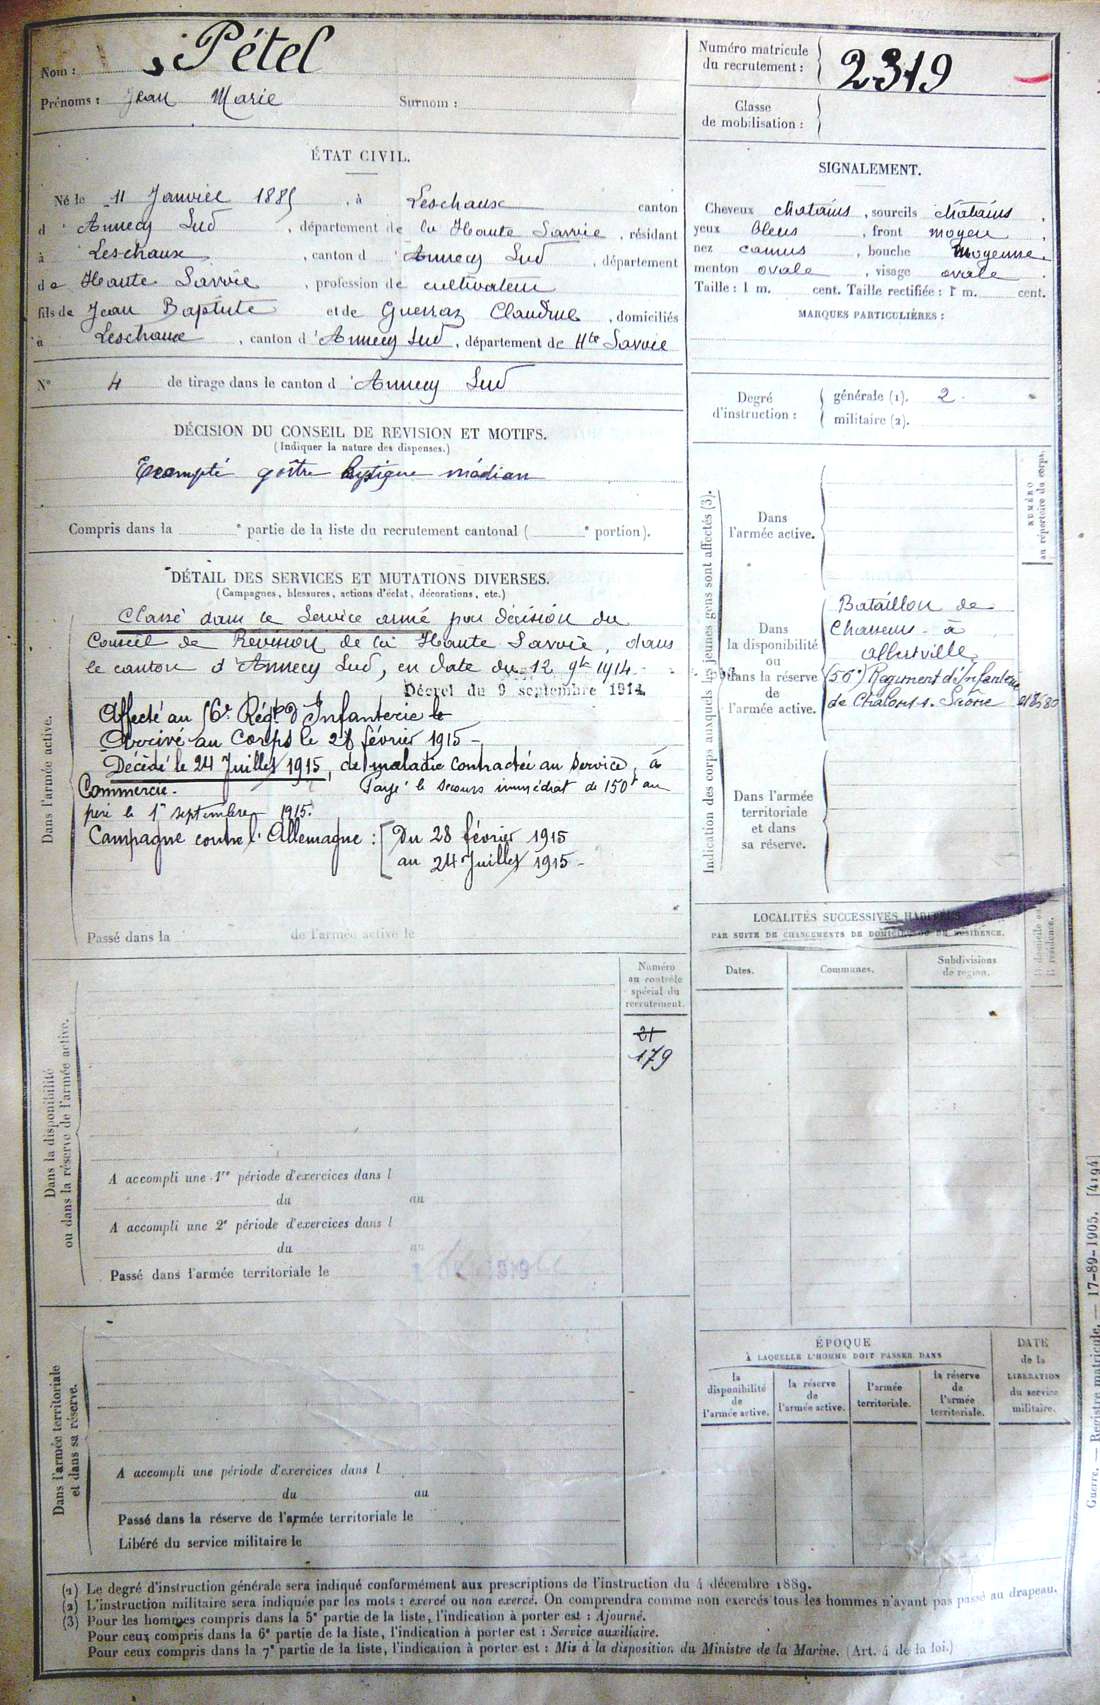 Nom : Pétel
Prénoms : Jean Marie Surnom :
Numéro matricule
du recrutement : 2319
Classe
de mobilisation :
ÉTAT CIVIL.
Né le 11 Janvier 1885, à Leschaux canton
d'Annecy Sud, département de la Haute Savoie, résidant
à Leschaux, canton d'Annecy Sud, département
de Haute Savoie, profession de cultivateur
fils de Jean Baptiste et de Guerraz Claudine, domiciliés
à Leschaux, canton d'Annecy Sud, département de Hte Savoie
N° 4 de tirage dans le canton d'Annecy Sud
SIGNALEMENT.
Cheveux chatains, sourcils châtains,
yeux bleus, front moyen,
nez camus, bouche moyenne,
menton ovale, visage ovale.
Taille : 1 m. cent. Taille rectifiée : 1 m. cent.
MARQUES PARTICULIÈRES :
Degré
d'instruction :
générale (1). 2.
militaire (2).
DÉCISION DU CONSEIL DE REVISION ET MOTIFS.
(Indiquer la nature des dispenses.)
Exempté goître médian
Compris dans la e partie de la liste du recrutement cantonal ( e portion).
DÉTAIL DES SERVICES ET MUTATIONS DIVERSES.
(Campagnes, blessures, actions d'éclat, décorations, etc.)
Dans l'armée active.
Classé dans le Service armé par décision du
Conseil de Revision de la Haute Savoie, dans
le canton d'Annecy Sud, en date du 12 9bre 1914.
Décret du 9 septembre 1914
Affecté au 56e Régt d'Infanterie le
Arrivé au Corps le 28 février 1915 -
Décédé le 24 Juillet 1915, de maladie contractée au service, à
Commercie. Payé le secours immédiat de 150f au
père le 1er septembre 1915.
Campagne contre l'Allemagne : Du 28 février 1915
au 24 Juillet 1915 -
Passé dans la de l'armée active le
Indication des corps auxquels les jeunes gens sont affectés (3).
NUMÉRO
au répertoire du corps.
Dans
l'armée active.
Dans
la disponibilité
ou
dans la réserve
de
l'armée active.
Bataillon de
Chasseurs à
Albertville
(56e) Régiment d'Infanterie
de Chalon s. Saône
Dans l'armée
territoriale
et dans
sa réserve.
LOCALITÉS SUCCESSIVES HABITÉES
PAR SUITE DE CHANGEMENTS DE DOMICILE OU DE RÉSIDENCE.
Dates.
Communes.
Subdivisions
de région.
Dans la disponibilité
ou dans la réserve de l'armée active.
Numéro
au contrôle
spécial du
recrutement.
21
179
A accompli une 1re période d'exercices dans l
du au
A accompli une 2e période d'exercices dans l
du au
Passé dans l'armée territoriale le
Dans l'armée territoriale
et dans sa réserve.
A accompli une période d'exercices dans l
du au
Passé dans la réserve de l'armée territoriale le
Libéré du service militaire le
ÉPOQUE
À LAQUELLE L'HOMME DOIT PASSER DANS
la
disponibilité
de
l'armée active.
la réserve
de
l'armée active.
l'armée
territoriale.
la réserve
de
l'armée
territoriale.
DATE
de la
LIBÉRATION
du service
militaire.
(1) Le degré d'instruction générale sera indiqué conformément aux prescriptions de l'instruction du 4 décembre 1889.
(2) L'instruction militaire sera indiquée par les mots : exercé ou non exercé. On comprendra comme non exercés tous les hommes n'ayant pas passé au drapeau.
(3) Pour les hommes compris dans la 5e partie de la liste, l'indication à porter est : Ajourné.
Pour ceux compris dans la 6e partie de la liste, l'indication à porter est : Service auxiliaire.
Pour ceux compris dans la 7e partie de la liste, l'indication à porter est : Mis à la disposition du Ministre de la Marine. (Art. 4 de la loi.)
Guerre. — Registre matricule. — 17-89-1905. [4194]